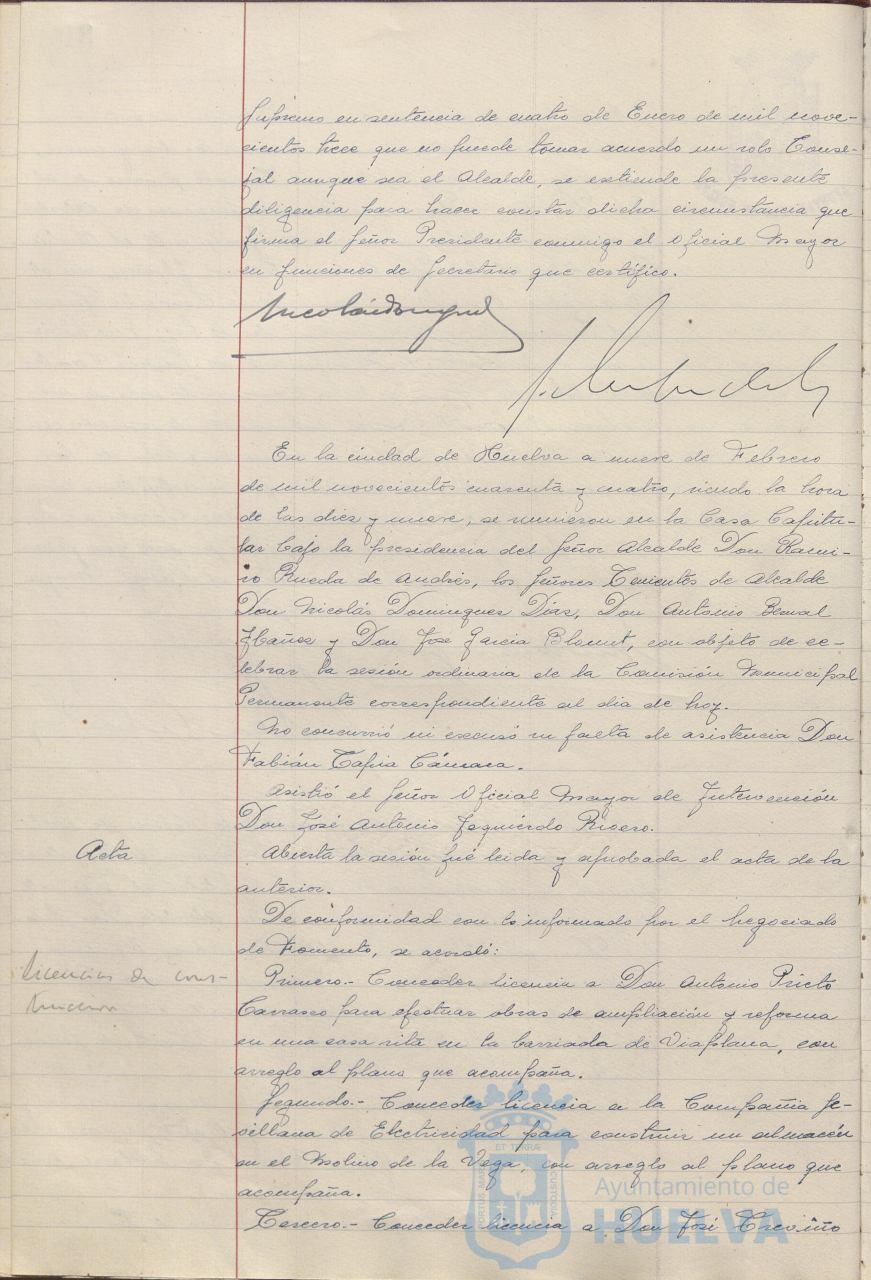 Supremo en sentencia de cuatro de Enero de mil nove-
cientos trece que no puede tomar acuerdo un solo Conce-
jal aunque sea el Alcalde, se extiende la presente
diligencia para hacer constar dicha circunstancia que
firma el Señor Presidente conmigo el Oficial Mayor
en funciones de Secretario que certifico.
Nicolás Domínguez
En la ciudad de Huelva a nueve de Febrero
de mil novecientos cuarenta y cuatro, siendo la hora
de las diez y nueve, se reunieron en la Casa Capitu-
lar bajo la presidencia del Señor Alcalde Don Rami-
ro Rueda de Andrés, los Señores Tenientes de Alcalde
Don Nicolás Dominguez Díaz, Don Antonio Bernal
Ibañez y Don José Garcia Blomut, con objeto de ce-
lebrar la sesión ordinaria de la Comisión Municipal
Permanente correspondiente al dia de hoy.
No concurrió ni excusó su falta de asistencia Don
Fabián Tapia Cámara.
Asistió el Señor Oficial Mayor de Intervención
Don José Antonio Izquierdo Rivero.
Acta
Abierta la sesión fué leida y aprobada el acta de la
anterior.
De conformidad con lo informado por el Negociado
de Fomento, se acordó:
Licencias de cons-
trucción
Primero.- Conceder licencia a Don Antonio Prieto
Carrasco para efectuar obras de ampliación y reforma
en una casa sita en la barriada de Viaplana, con
arreglo al plano que acompaña.
Segundo.- Conceder licencia a la Compañia Se-
villana de Electricidad para construir un almacén
en el Molino de la Vega, con arreglo al plano que
acompaña.
Tercero.- Conceder licencia a Don José Treviño
PORTUS MARIS ET TERRÆ CUSTODIA
Ayuntamiento de
HUELVA